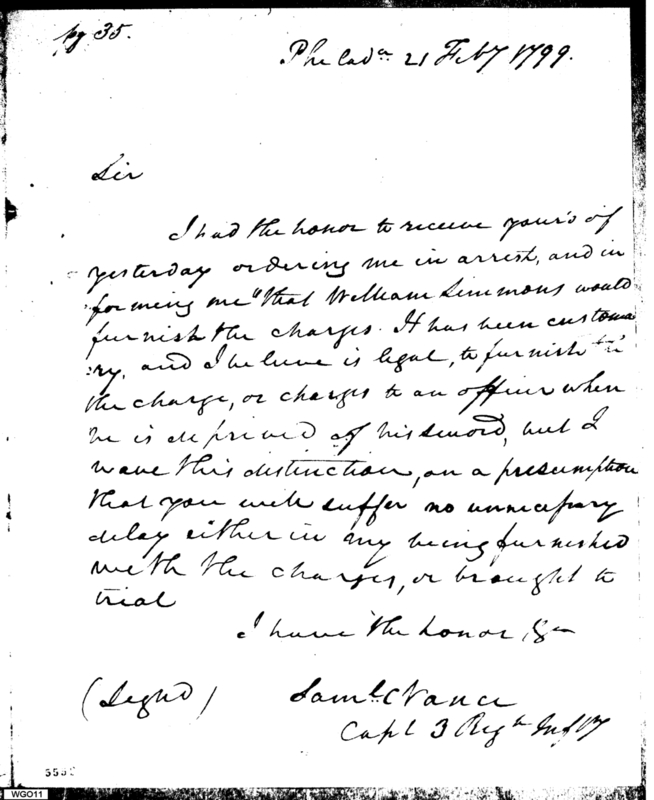 pg 35.
Philada. 21 Feby 1799.
Sir
I had the honor to receive your's of
yesterday ordering me in arrest, and in
forming me "that William Simmons would
furnish the charges. It has been customa
ry, and I believe is legal, to furnish
the charge, or charges to an officer when
he is deprived of his sword, but I
wave this distinction, on a presumption
that you will suffer no unnecessary
delay either in my being furnished
with the charges, or brought to
trial
I have the honor &c
(Signd) Saml. C Vance
Capt 3 Regt Infty
WGO11